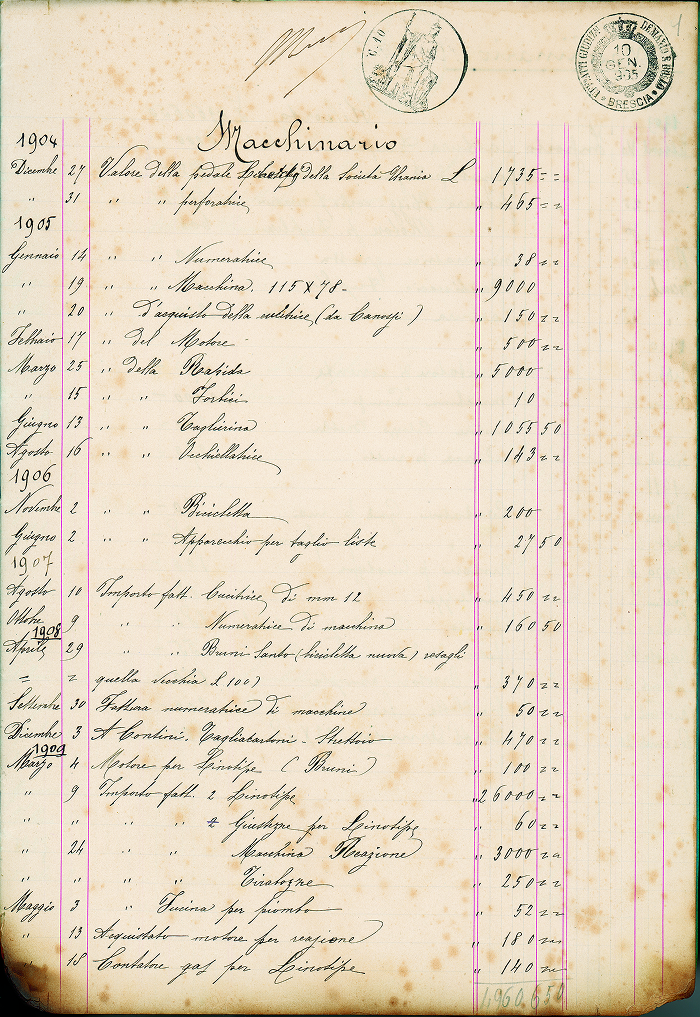 1
C. 10
UFF. ATTI GIUDIZI DEMANIO E BOLLO
10
GEN.
905
BRESCIA
Macchinario
1904
Dicembre 27 Valore della pedale della Società Urania L 1735 = =
" 31 " " perforatrice " 465 = =
1905
Gennaio 14 " " Numeratrice " 38 = =
" 19 " " Macchina. 115 X 78 - " 9000
" 20 " d'acquisto della cucitrice (da Canossi) " 150 = =
Febbraio 17 " del Motore " 500 = =
Marzo 25 " della Rapida " 5000
" 15 " " Forbici " 10
Giugno 13 " " Taglierina " 1055 50
Agosto 16 " " Occhiellatrice " 143 = =
1906
Novembre 2 " " Bicicletta " 200
Giugno 2 " " Apparecchio per taglio liste " 27 50
1907
Agosto 10 Importo fatt. Cucitrice di mm 12 " 450 = =
Ottobre 9 " " Numeratrice di macchina " 160 50
1908
Aprile 29 " " Bruni Santo (bicicletta nuova)
= = quella vecchia £ 100) " 370 = =
Settembre 30 Fattura numeratrice di macchine " 50 = =
Dicembre 3 A Contini. Tagliacartoni - Strettoio " 470 = =
1909
Marzo 4 Motore per Linotipe (Bruni) " 100 = =
" 9 Importo fatt. 2 Linotipe " 26000 = =
" " " " Giustezze per Linotipe " 60 = =
" 24 " " Macchina Reazione " 3000 = =
" " " " Tirabozze " 250 = =
Maggio 3 " Fucina per piombo " 52 = =
" 13 Acquistato motore per reazione " 180 = =
" 18 Contatore gas per Linotipe " 140 =